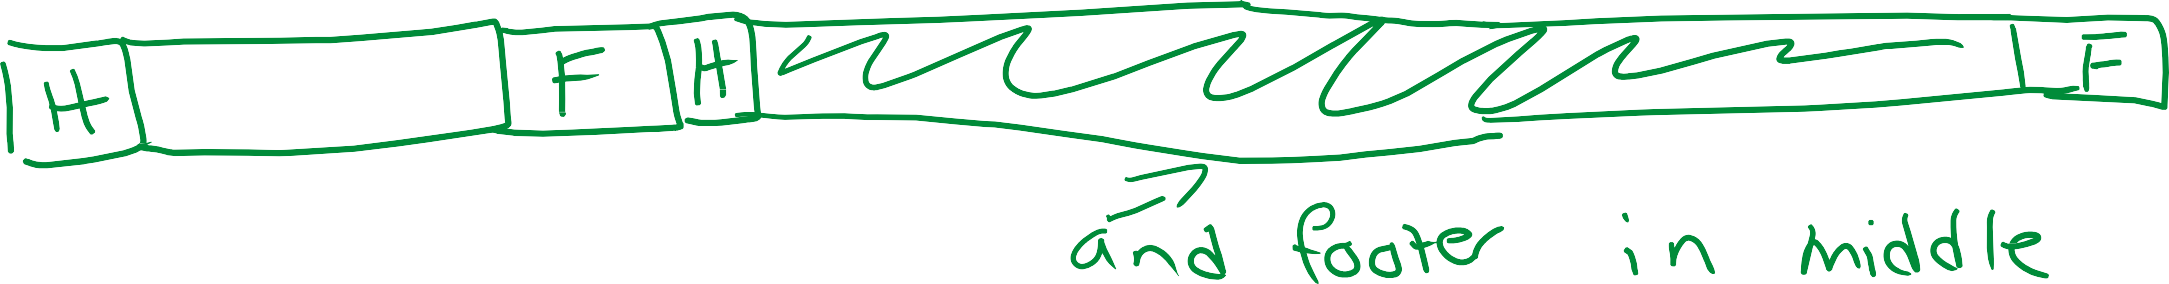 H F H F
and footer in middle